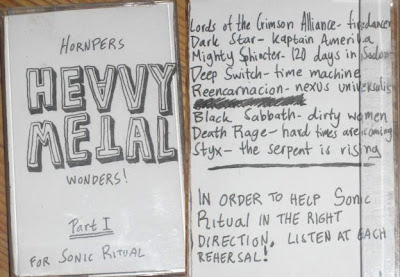 HORNPERS
HEAVY
METAL
WONDERS!
Part I
FOR SONIC RITUAL
Lords of the Crimson Alliance- firedancer
Dark Star- Kaptain Amerika
Mighty Sphincter- 120 days in Sodom
Deep Switch- time machine
Reencarnacion- nexus universalis
Black Sabbath- dirty women
Death Rage- hard times are coming
Styx- the serpent is rising
IN ORDER TO HELP SONIC
RITUAL IN THE RIGHT
DIRECTION, LISTEN AT EACH
REHERSAL!